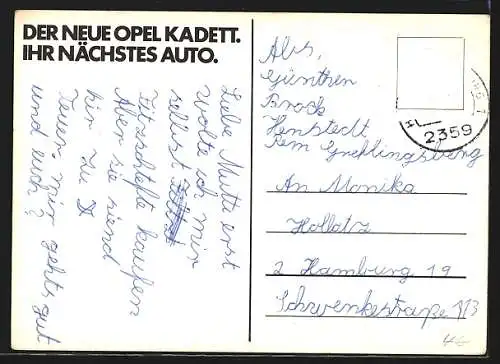 DER NEUE OPEL KADETT.
IHR NÄCHSTES AUTO.
Liebe Mutti erst
wolte ich mir
selbst
Filzschtifte kaufen
Aber sie siend
hir zu
Teuer, mir gehts gut
und euch?
Abs,
Günther
Brock
Henstedt
Beim
An Monika
Hollatz
2 Hamburg 19
Schwenkestraße 113
2359